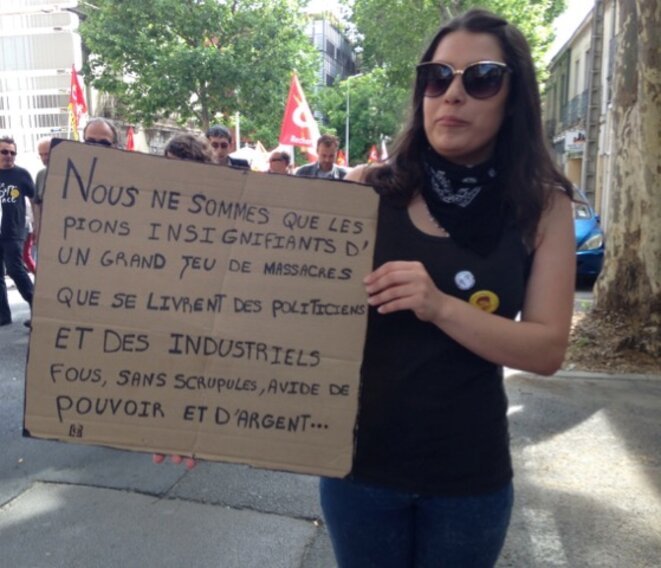 NOUS NE SOMMES QUE LES
PIONS INSIGNIFIANTS D'
UN GRAND JEU DE MASSACRES
QUE SE LIVRENT DES POLITICIENS
ET DES INDUSTRIELS
FOUS, SANS SCRUPULES, AVIDE DE
POUVOIR ET D'ARGENT...